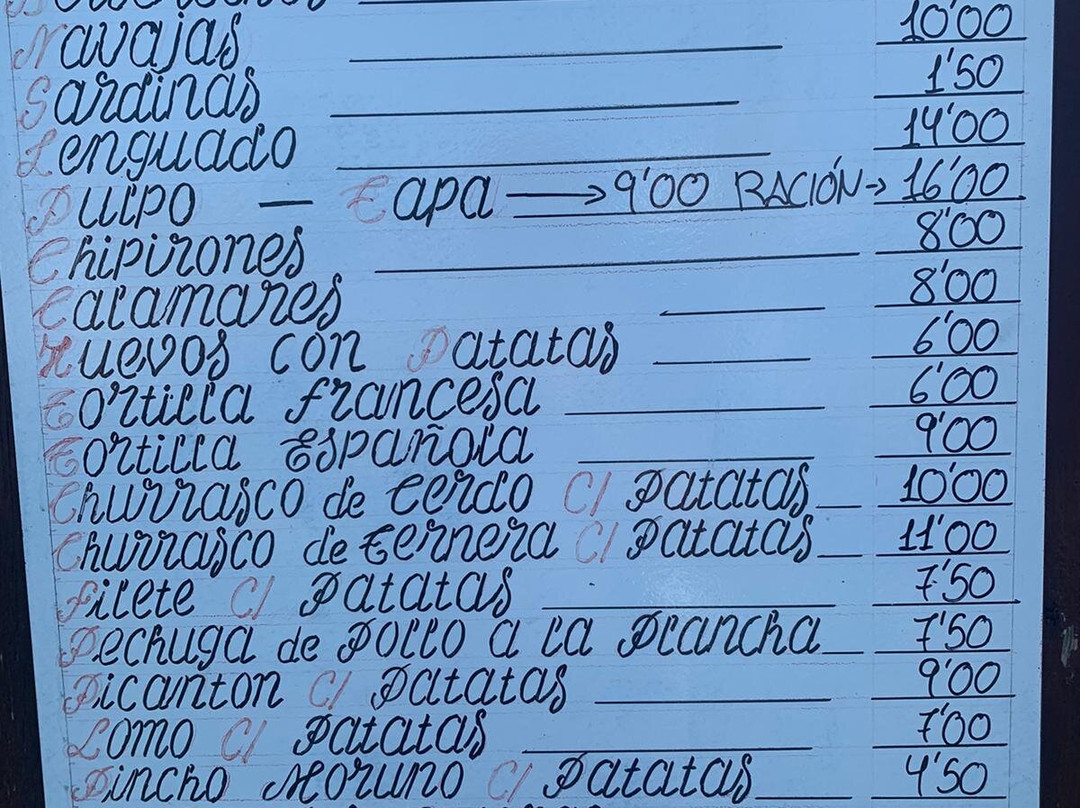 Navajas 10'00
Sardinas 1'50
Lenguado 14'00
Pulpo — Tapa → 9'00 RACIÓN → 16'00
Chipirones 8'00
Calamares 8'00
Huevos con Patatas 6'00
Tortilla francesa 6'00
Tortilla Española 9'00
Churrasco de Cerdo C/ Patatas 10'00
Churrasco de Ternera C/ Patatas 11'00
Filete C/ Patatas 7'50
Pechuga de Pollo a la Plancha 7'50
Picanton C/ Patatas 9'00
Lomo C/ Patatas 7'00
Pincho Moruno C/ Patatas 4'50